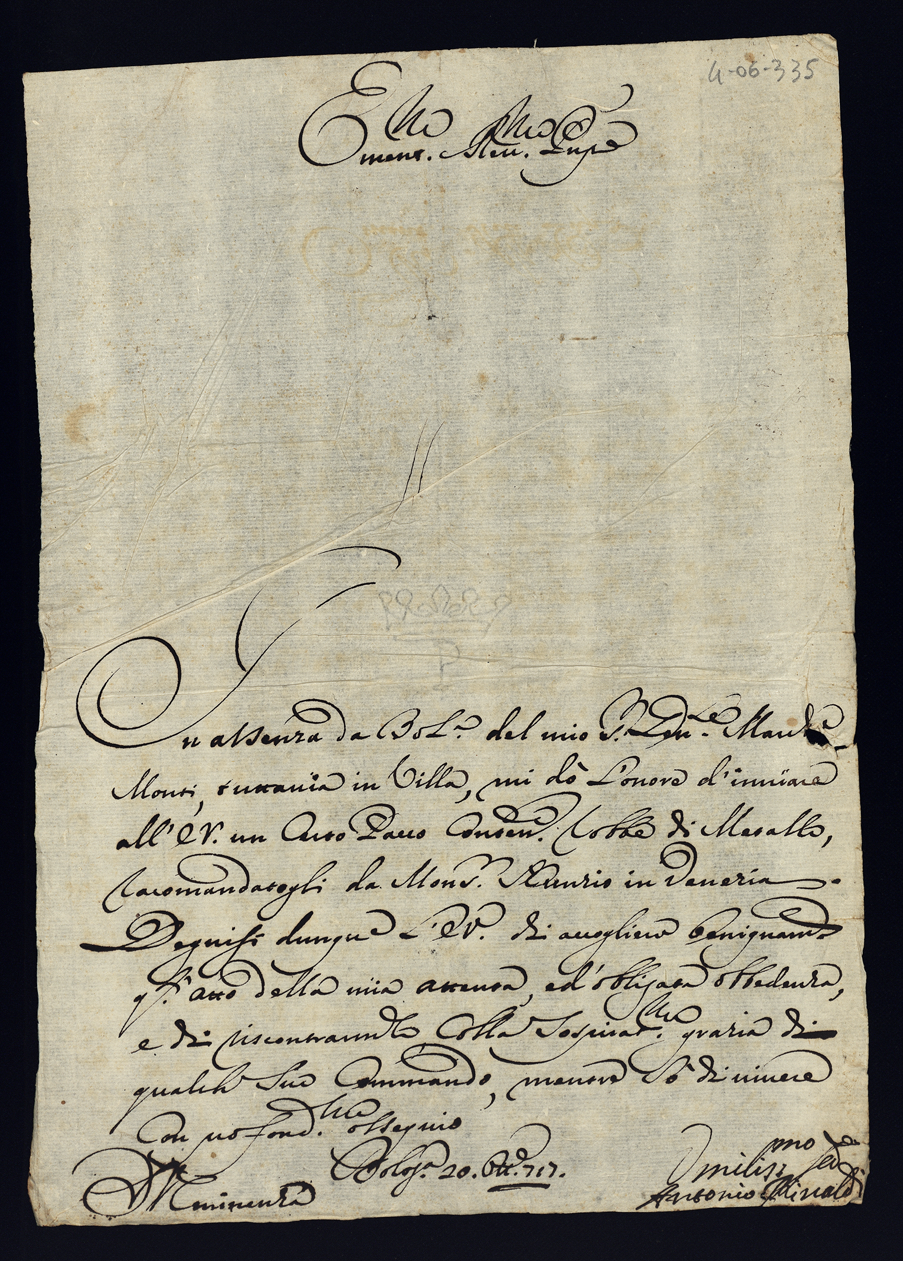 4-06-335
Emin.mo Rev.mo Prnpe
In assenza da Bol.a del mio S.r March.e
Monti, tuttavia in Villa, mi dò l'onore d'inviare
all'E.V. un Certo Pacco Conten.e Robbe di Metallo,
racomandatogli da Mons.r in Venezia.
Degnisi dunque l'E.V. di accogliere benignam.te
q.to atto della mia attenta, ed obligata obbedenza,
e di riscontrarmelo colla Sospirat.ma grazia di
qualche Suo Commando, mentre hò di vivere
con profond.mo ossequio
D.V. Eminenza
Bolog.a 20. Ott.e 717.
Umiliss.mo
Antonio Rinaldi